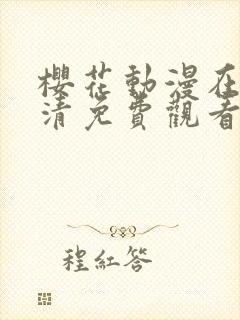 櫻花動漫在
清免費觀看
程紅答